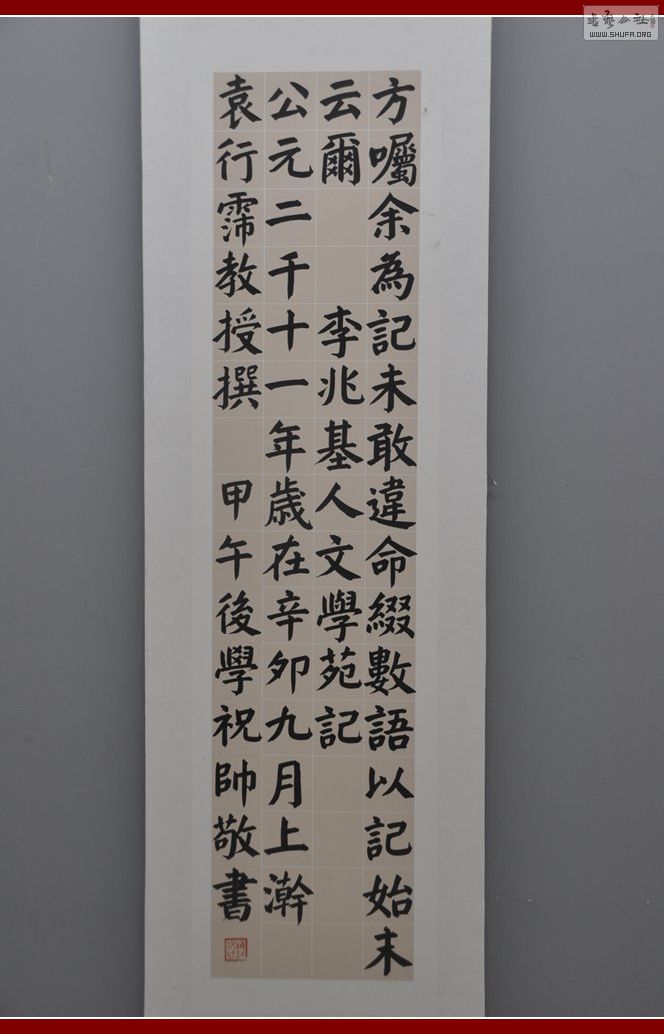 方囑余為記未敢違命綴數語以記始末
云爾 李兆基人文學苑記
公元二千十一年歲在辛卯九月上澣
袁行霈教授撰 甲午後學祝帥敬書
WWW.SHUFA.ORG